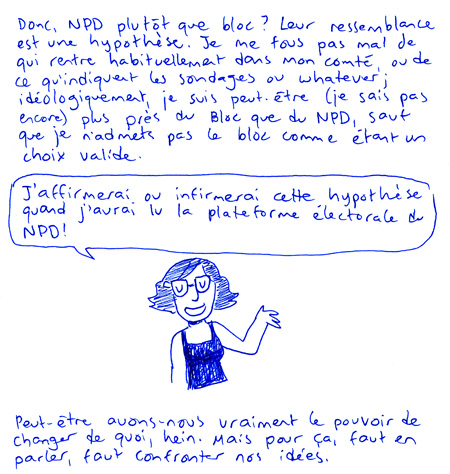 Donc, NPD plutôt que bloc? Leur ressemblance
est une hypothèse. Je me fous pas mal de
qui rentre habituellement dans mon comté, ou de
ce qu'indiquent les sondages ou whatever;
idéologiquement, je suis peut-être (je sais pas
encore) plus près du Bloc que du NPD, sauf
que je n'admets pas le bloc comme étant un
choix valide.
J'affirmerai ou infirmerai cette hypothèse
quand j'aurai lu la plateforme électorale du
NPD!
Peut-être avons-nous vraiment le pouvoir de
changer de quoi, hein. Mais pour ça, faut en
parler, faut confronter nos idées.